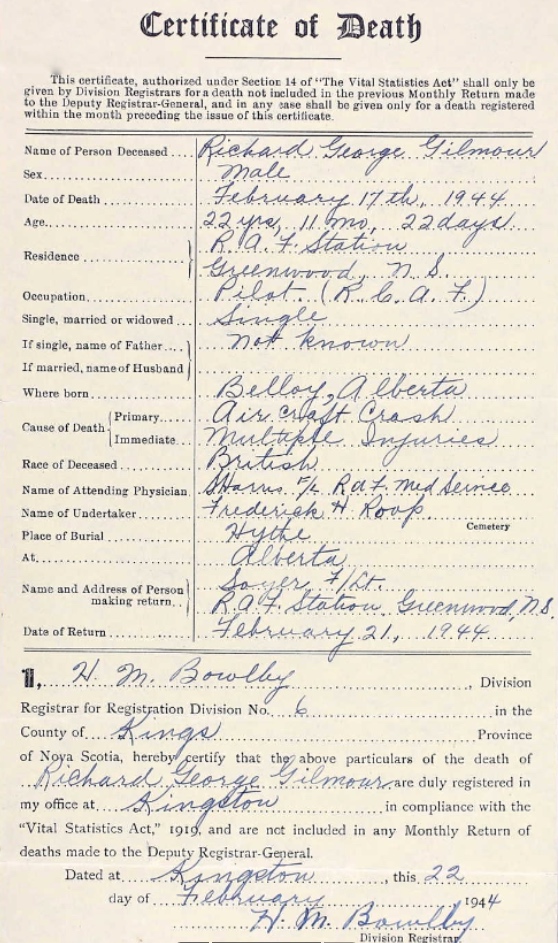 Certificate of Death
This certificate, authorized under Section 14 of "The Vital Statistics Act" shall only be
given by Division Registrars for a death not included in the previous Monthly Return made
to the Deputy Registrar-General, and in any case shall be given only for a death registered
within the month preceding the issue of this certificate.
Name of Person Deceased.... Richard George Gilmour
Sex........ Male
Date of Death........ February 17th, 1944
Age........ 22 yrs, 11 mo, 22 days
Residence........ R.A.F. Station
Greenwood, N.S.
Occupation........ Pilot. (R.C.A.F.)
Single, married or widowed... Single
If single, name of Father... not known
If married, name of Husband
Where born........ Belloy, Alberta
Cause of Death Primary........ Air craft Crash
Immediate.... Multiple Injuries
Race of Deceased........ British
Name of Attending Physician. F/L R.A.F. Med Service
Name of Undertaker........ Frederick H Roop.
Cemetery
Place of Burial........ Hythe
At........ Alberta
Name and Address of Person making return... Sayer F/Lt.
R.A.F. Station Greenwood, N.S.
Date of Return........ February 21, 1944
I, H. M. Bowlby, Division
Registrar for Registration Division No. 6 in the
County of Kings Province
of Nova Scotia, hereby certify that the above particulars of the death of
Richard George Gilmour are duly registered in
my office at Kingston in compliance with the
"Vital Statistics Act," 1919, and are not included in any Monthly Return of
deaths made to the Deputy Registrar-General.
Dated at Kingston, this 22
day of February 1944
H. M. Bowlby
Division Registrar